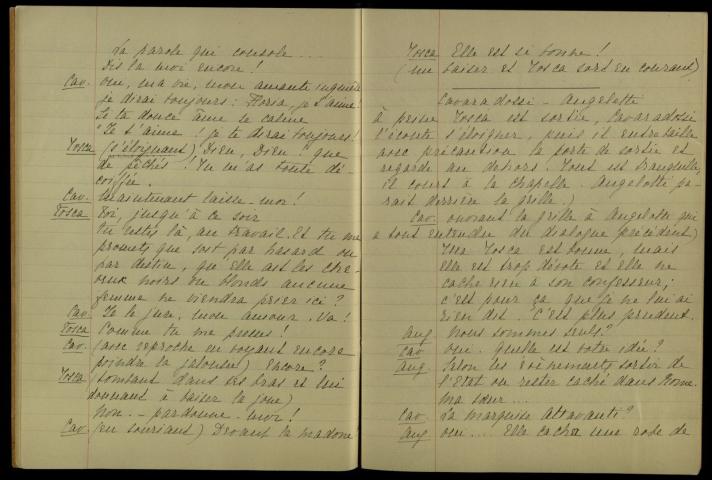 la parole qui console ....
Dis la moi encore!
Cav. Oui, ma vie, mon amante inquiète
je dirai toujours: Floria, je t'aime!
Si ta douce âme se calme
"Je t'aime! je te dirai toujours!
Tosca (s'éloignant) Dieu, Dieu! que
de péchés! Tu m'as toute dé-
coiffée.
Cav. Maintenant laisse-moi!
Tosca Toi, jusqu'à ce soir
tu restes là, au travail. Et tu me
promets que soit par hasard ou
par destin, que elle ait les che-
veux noirs ou blonds aucune
femme ne viendra prier ici?
Cav. Je le jure, mon amour. Va!
Tosca Comme tu me presses!
Cav. (avec reproche en voyant encore
poindre la jalousie) Encore?
Tosca (tombant dans ses bras et lui
donnant à baiser la joue)
Non. - pardonne-moi!
Cav. (en souriant) Devant la madone
Tosca Elle est si bonne!
(un baiser et Tosca sort en courant)
Cavaradossi - Angelotti
à peine Tosca est sortie, Cavaradossi
l'écoute s'éloigner, puis il entrebaille
avec précaution la porte de sortie et
regarde au dehors. Tout est tranquille,
il court à la chapelle. Angelotti pa-
rait derrière la grille.)
Cav. ouvrant la grille à Angelotti qui
a tout entendre du dialogue précédent)
Tosca est bonne, mais
elle est trop dévote et elle ne
cache rien à son confesseur;
c'est pour ça que je ne lui ai
rien dit. C'est plus prudent.
Ang Nous sommes seuls?
Cav Oui. Quelle est votre idée?
Ang Selon les évènements, sortir de
l'Etat ou rester caché dans Rome.
Ma sœur...
Cav. La marquise Attavanti?
Ang Oui.... Elle cacha une robe de